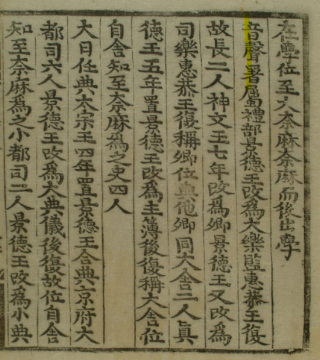 在學位至大奈麻奈麻而後出學
音聲署屬禮部景德王改爲大樂監惠恭王復
故長二人神文王七年改爲卿景德王又改爲
司樂惠恭王復稱卿位與他卿同大舍二人眞
德王五年置景德王改爲主簿後復稱大舍位
自舍知至奈麻爲之史四人
大日任典太宗王四年置景德王合典京府大
都司六人景德王改爲大典儀後復故位自舍
知至奈麻爲之小都司二人景德王改爲小典